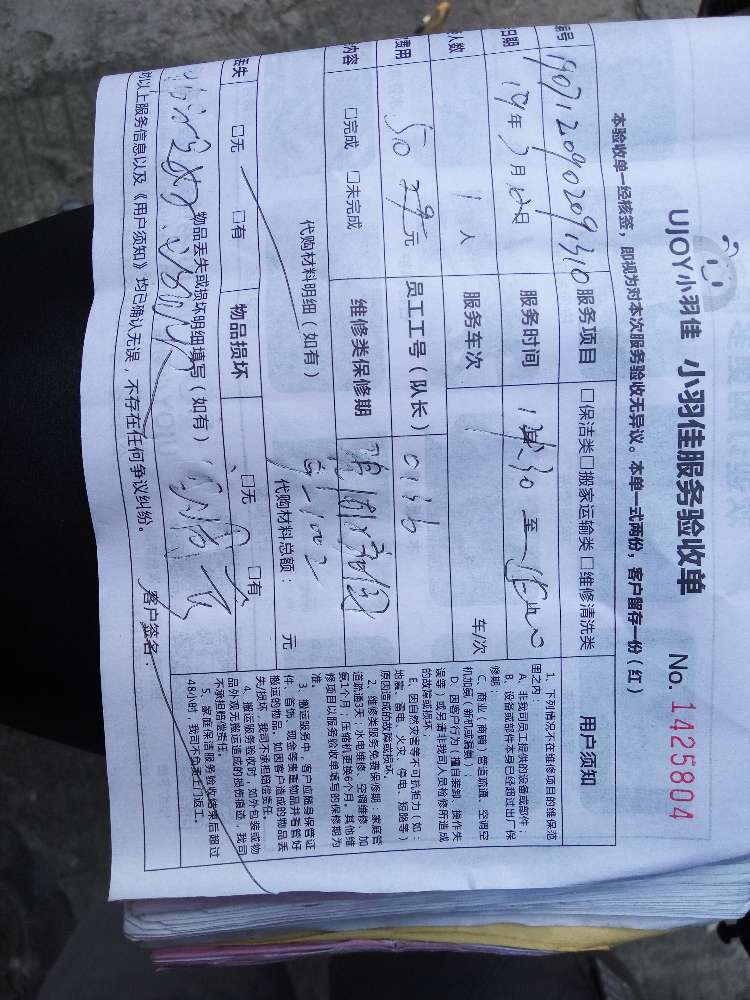 UJOY小羽佳 小羽佳服务验收单 No. 1425804
本验收单一经核签，即视为对本次服务验收无异议。本单一式两份，客户留存一份（红）
编号 1907120902091310 服务项目 □保洁类□搬家运输类□维修清洗类
日期 19年7月12日 服务时间 至
人数 1人 服务车次 车/次
费用 50 元 员工工号（队长） 0136
内容 □完成 □未完成 维修类保修期
代购材料明细（如有） 代购材料总额： 元
丢失 □无 □有 物品损坏 □无 □有
物品丢失或损坏明细填写（如有）
对以上服务信息以及《用户须知》均已确认无误，不存在任何争议纠纷。 客户签名：
用户须知
1、下列情况不在维修项目的维保范
围之内：
A、非我司员工提供的设备或部件；
B、设备或部件本身已经超过出厂保
修期；
C、商业（商铺）管道疏通、空调空
机加氨（新机或漏氨）；
D、因客户行为（擅自装卸、操作失
误等）或另请非我司人员检修所造成
的故障或损坏；
E、因自然灾害等不可抗拒力（如：
地震、雷电、火灾、停电、短路等）
原因造成的故障或损坏。
2、维修类服务免费保修期：家庭管
道疏通3天，水电维修、空调维修、加
氨1个月；压缩机更换6个月，其他维
修项目以服务验收单填写的保修期为
准。
3、搬运服务中，客户应随身保管证
件、首饰、现金等贵重物品并看管好
搬运的物品，如因客户造成的物品丢
失/损坏，我司不承担赔偿责任。
4、搬运服务验收时，如外包装或物
品外观无搬运造成的损伤痕迹，我司
不承担赔偿责任。
5、家庭保洁服务验收结束后超过
48小时，我司不负责上门返工。